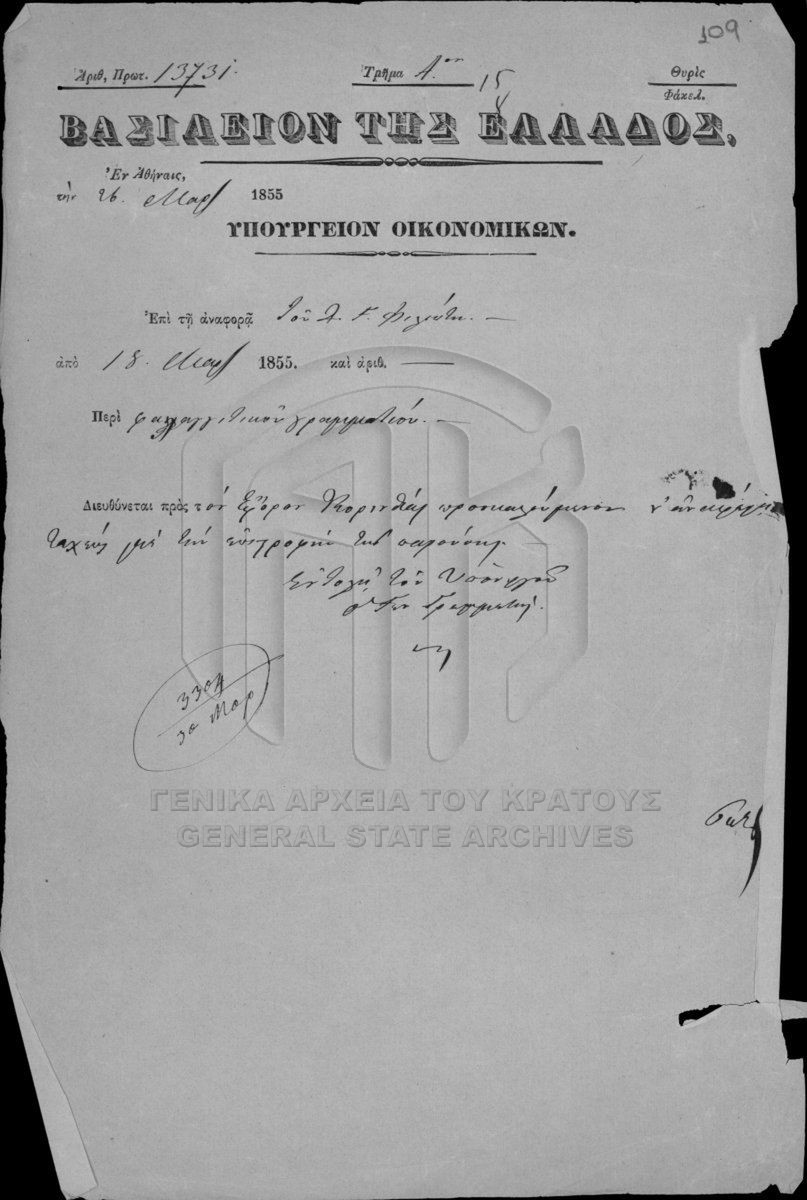 109
Ἀριθ, Πρωτ. 13731. Τμῆμα Α.ον 15 Θυρὶς
Φάκελ.
ΒΑΣΙΛΕΙΟΝ ΤΗΣ ΕΛΛΑΔΟΣ,
Ἐν Ἀθήναις,
τὴν 26. Μαρ 1855
ΥΠΟΥΡΓΕΙΟΝ ΟΙΚΟΝΟΜΙΚΩΝ.
Ἐπὶ τῇ ἀναφορᾷ τοῦ
ἀπὸ 18. Μαρ 1855. καὶ ἀριθ. —
Περὶ φαλαγγιτικοῦ γραμματίου. —
Διευθύνεται πρὸς τὸν Ἔφορον Κορινθίας προσκαλούμενον
ταχέως μὲ τὴν ἐπιστροφὴν τῆς παρούσης
Ἐντολῇ τοῦ Ὑπουργοῦ
ὁ Γεν Γραμματεύς.
3304
30 Μαρ
ΓΕΝΙΚΑ ΑΡΧΕΙΑ ΤΟΥ ΚΡΑΤΟΥΣ
GENERAL STATE ARCHIVES